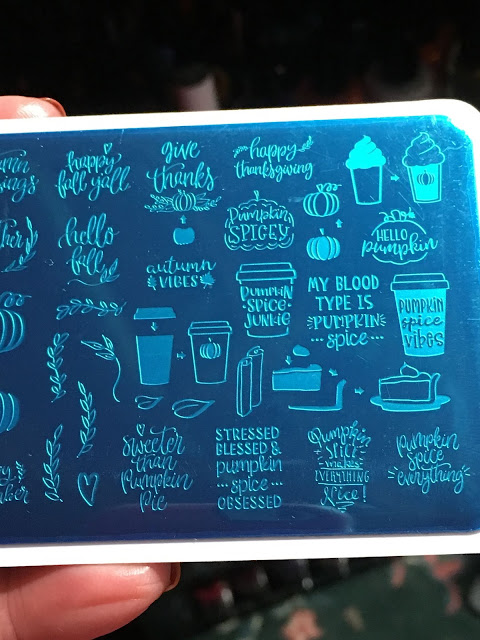 happy
fall y'all
give
thanks
happy
thanksgiving
hello
fall
Pumpkin
SPICEY
HELLO
pumpkin
autumn
VIBES
PUMPKIN
SPICE
JUNKIE
MY BLOOD
TYPE IS
PUMPKIN
spice
PUMPKIN
spice
vibes
sweeter
than
Pumpkin
Pie
STRESSED
BLESSED &
pumpkin
spice
OBSESSED
Pumpkin
makes
EVERYTHING
pumpkin
spice
everything